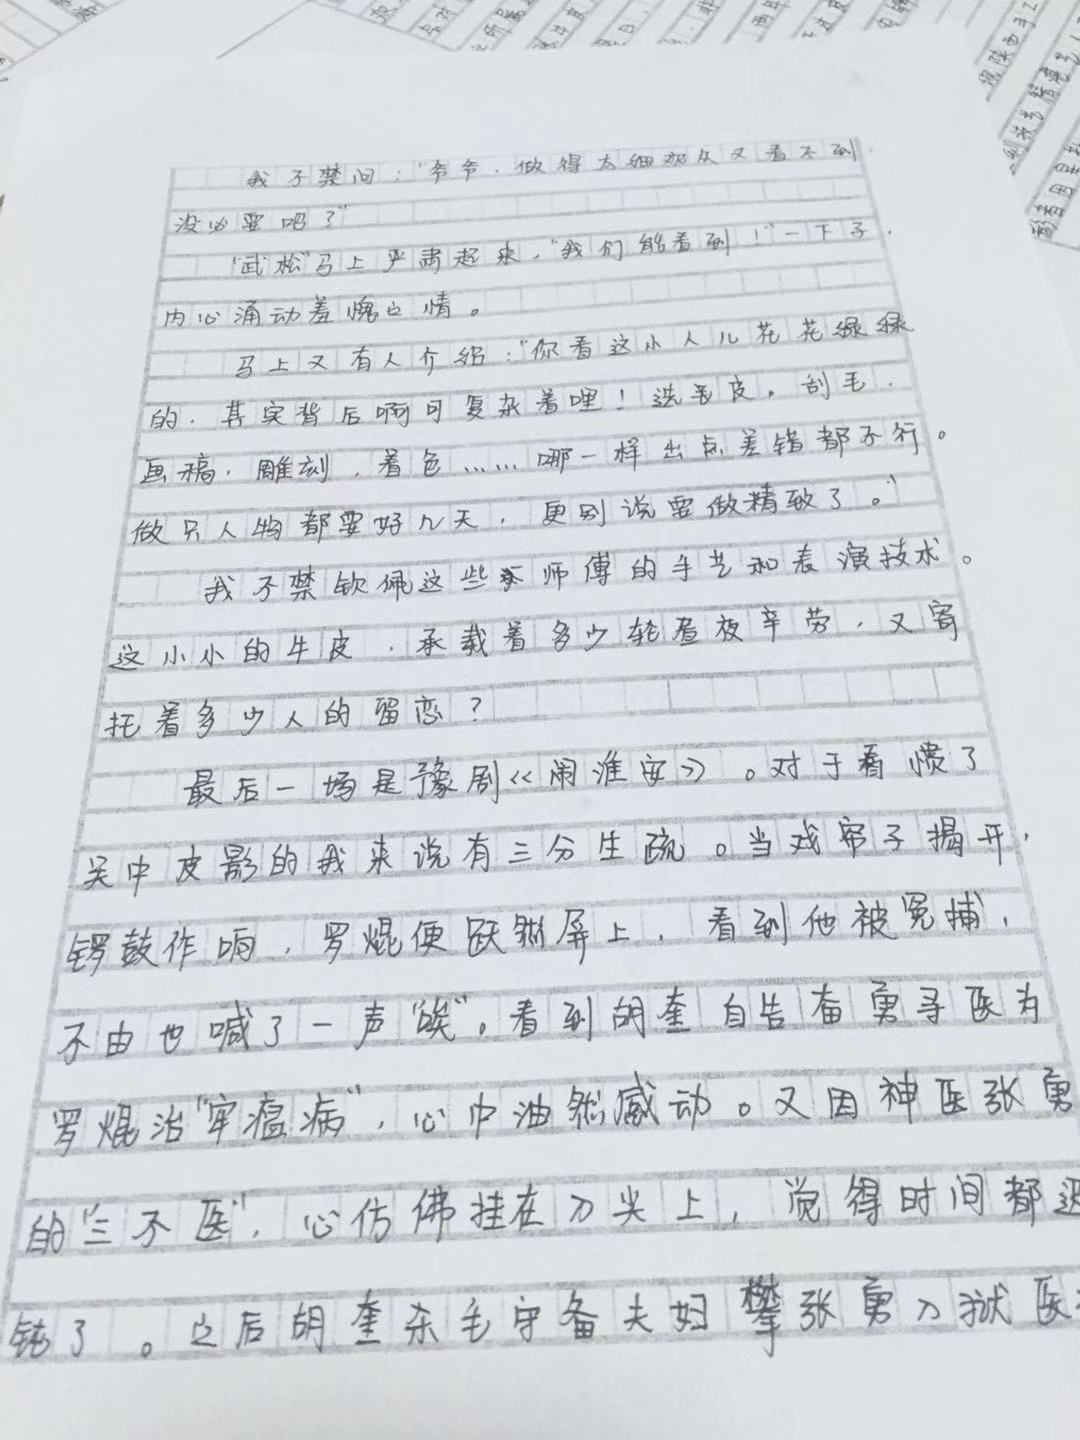 我不禁问：“爷爷，做得太细观众又看不到，
没必要吧？”
“武松”马上严肃起来，“我们能看到！”一下子，
内心涌动羞愧之情。
马上又有人介绍：“你看这小人儿花花绿绿
的，其实背后啊可复杂着哩！选毛皮，刮毛，
画稿，雕刻，着色……哪一样出点差错都不行。
做只人物都要好几天，更别说要做精致了。”
我不禁钦佩这些师傅的手艺和表演技术。
这小小的牛皮，承载着多少轮昼夜辛劳，又寄
托着多少人的留恋？
最后一场是豫剧《闹淮安》。对于看惯了
吴中皮影的我来说有三分生疏。当戏帘子揭开，
锣鼓作响，罗焜便跃然屏上，看到他被冤捕，
不由也喊了一声“唉”。看到胡奎自告奋勇寻医为
罗焜治“牢瘟病”，心中油然感动。又因神医张勇
的“三不医”，心仿佛挂在刀尖上，觉得时间都迟
钝了。之后胡奎杀毛守备夫妇攀张勇入狱医